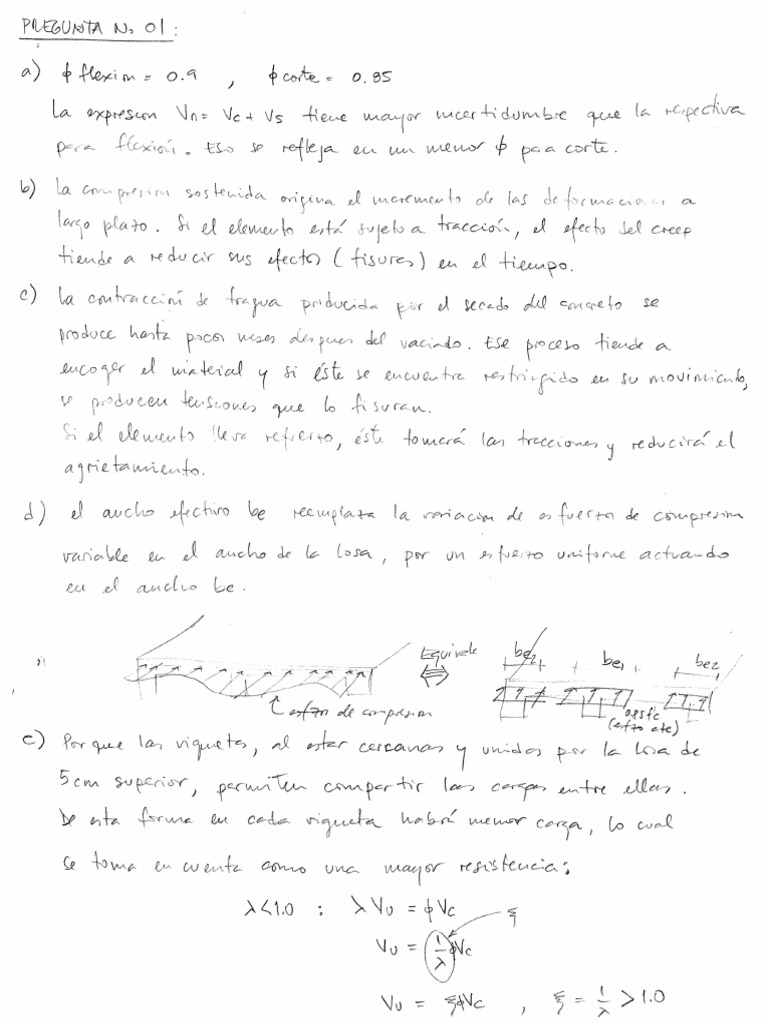 PREGUNTA No 01:
a) φ flexion = 0.9 , φ corte = 0.85
La expresion Vn = Vc + Vs tiene mayor incertidumbre que la respectiva
para flexión. Eso se refleja en un menor φ para corte.
b) La compresion sostenida origina el incremento de las deformaciones a
largo plazo. Si el elemento está sujeto a tracción, el efecto del creep
tiende a reducir sus efectos (fisuras) en el tiempo.
c) La contracción de fragua producida por el secado del concreto se
produce hasta pocos meses despues del vaciado. Ese proceso tiende a
encoger el material y si éste se encuentra restringido en su movimiento,
se producen tensiones que lo fisuran.
Si el elemento lleva refuerzo, éste tomará las tracciones y reducirá el
agrietamiento.
d) el ancho efectivo be reemplaza la variación de esfuerzo de compresion
variable en el ancho de la losa, por un esfuerzo uniforme actuando
en el ancho be.
Equivale
be2 be1 be2
esfzo de compresion
0.85f'c
(esfzo cte)
e) Porque las viguetas, al estar cercanas y unidas por la losa de
5cm superior, permiten compartir las cargas entre ellas.
De esta forma en cada vigueta habrá menor carga, lo cual
se toma en cuenta como una mayor resistencia:
λ<1.0 : λVu = φVc
ξ
Vu = 1/λ φVc
Vu = ξφVc , ξ = 1/λ > 1.0